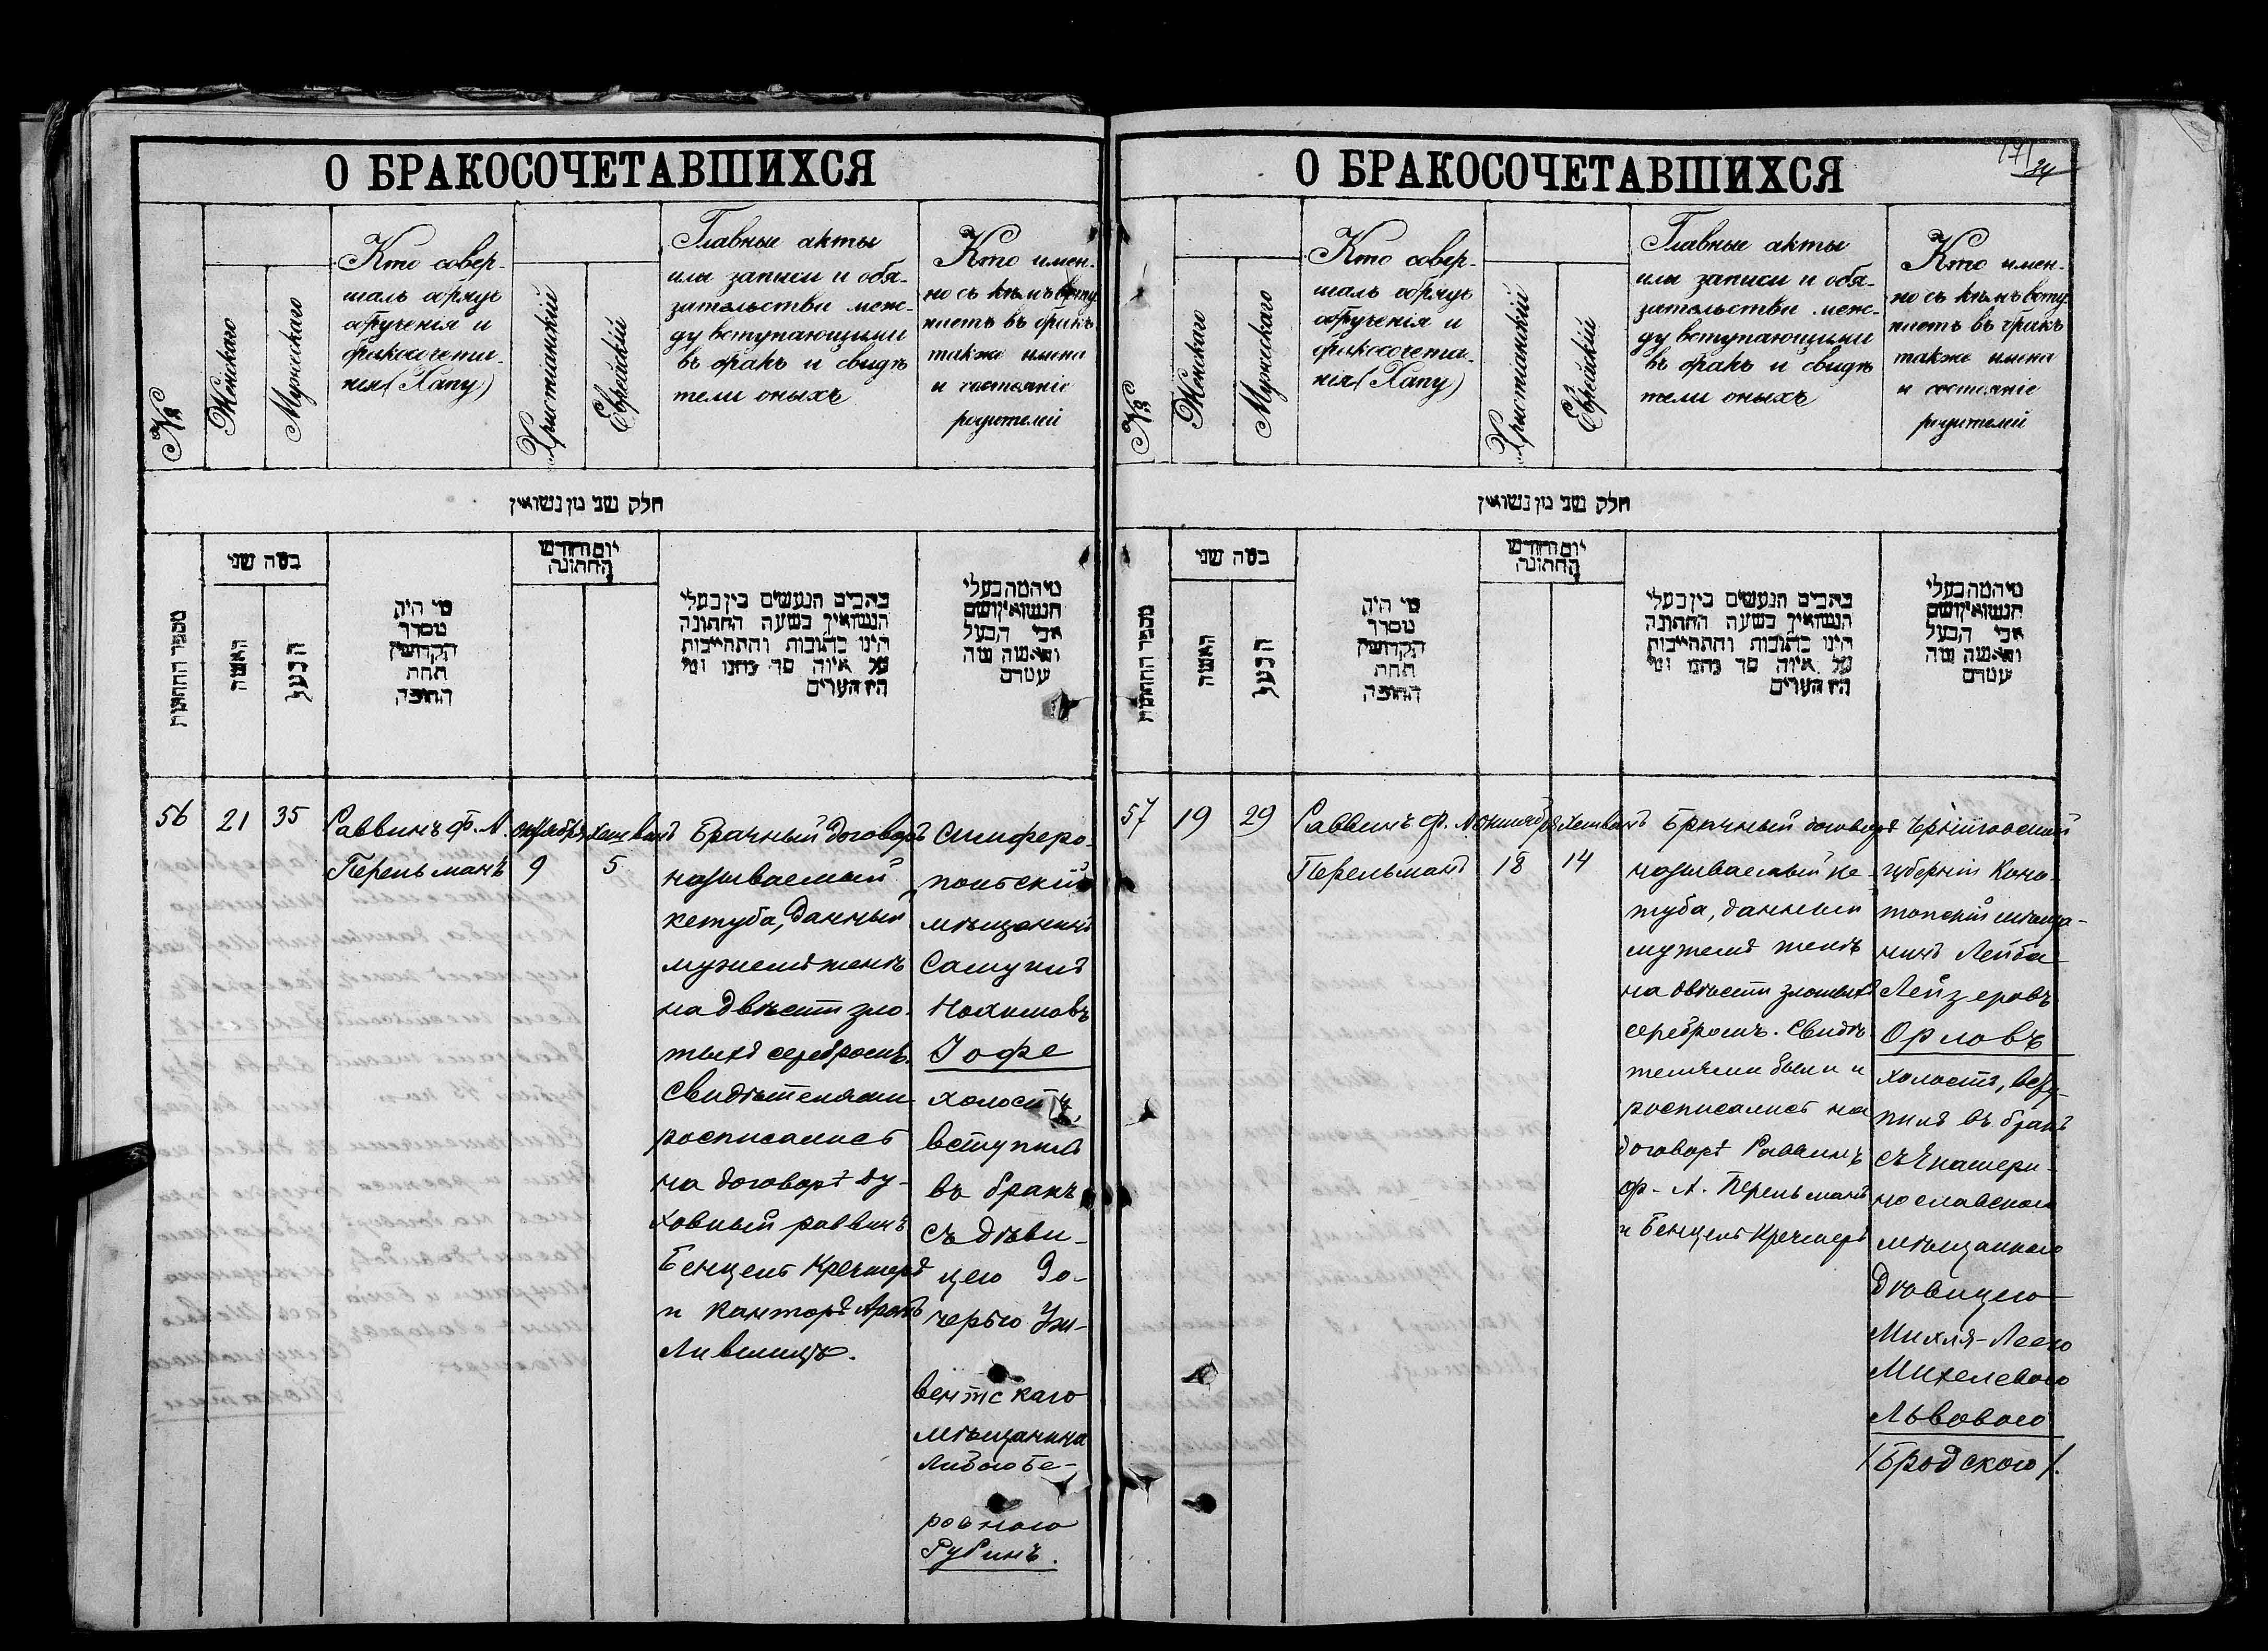 О БРАКОСОЧЕТАВШИХСЯ
№
Женскаго
Мужескаго
Кто совер-
шалъ обрядъ
обрученія и
бракосочета-
нія (Хапу)
Христіанскій
Еврейскій
Главные акты
или записи и обя-
зательства меж-
ду вступающими
въ бракъ и свидѣ
тели оныхъ
Кто имен-
но съ кѣмъ всту
паетъ въ бракъ
также имена
и состояніе
родителей
חלק שני מן נשואין
מספר החתונות
כמה שני
האשה
הבעל
מי היה
מסדר
הקדושין
תחת
החופה
יום וחודש
החתונה
כתבים הנעשים בין בעלי
הנשואין בשעה החתונה
היינו כתובות והתחייבות
על איזה סך נתנו ומי
היו העדים
מי המה בעלי
הנשואין ושם
אבי הבעל
והאשה מה
עמדם
56
21
35
Раввинъ Ф. А.
Перельманъ
октября
9
хешванъ
5
Брачный договоръ
называемый
кетуба, данный
мужемъ женѣ
на двѣсти зло-
тыхъ серебромъ.
Свидѣтелями
росписались
на договорѣ ду-
ховный раввинъ
Бенцель Кречмеръ
и канторъ Аронъ
Лившицъ.
Симферо-
польскій
мѣщанинъ
Самуилъ
Нохимовъ
Іофе
холостъ,
вступилъ
въ бракъ
съ дѣви-
цею до-
черью Уж-
вентскаго
мѣщанина
Либою Бе-
ровною
Рубинъ.
О БРАКОСОЧЕТАВШИХСЯ
171
№
Женскаго
Мужескаго
Кто совер-
шалъ обрядъ
обрученія и
бракосочета-
нія (Хапу)
Христіанскій
Еврейскій
Главные акты
или записи и обя-
зательства меж-
ду вступающими
въ бракъ и свидѣ
тели оныхъ
Кто имен-
но съ кѣмъ всту
паетъ въ бракъ
также имена
и состояніе
родителей
חלק שני מן נשואין
מספר החתונות
כמה שני
האשה
הבעל
מי היה
מסדר
הקדושין
תחת
החופה
יום וחודש
החתונה
כתבים הנעשים בין בעלי
הנשואין בשעה החתונה
היינו כתובות והתחייבות
על איזה סך נתנו ומי
היו העדים
מי המה בעלי
הנשואין ושם
אבי הבעל
והאשה מה
עמדם
57
19
29
Раввинъ Ф. А.
Перельманъ
октября
18
хешванъ
14
Брачный договоръ
называемый ке-
туба, данный
мужемъ женѣ
на двѣсти злотыхъ
серебромъ. Свидѣ-
телями были и
росписались на
договорѣ Раввинъ
Ф. А. Перельманъ
и Бенцель Кречмеръ
Черниговской
губерніи Коно-
топскій мѣща-
нинъ Лейба
Лейзеровъ
Орловъ
холостъ, всту-
пилъ въ бракъ
съ Екатери-
нославскою
мѣщанкою
дѣвицею
Михля-Леею
Михелевою
Львовою
/Бродскою/.